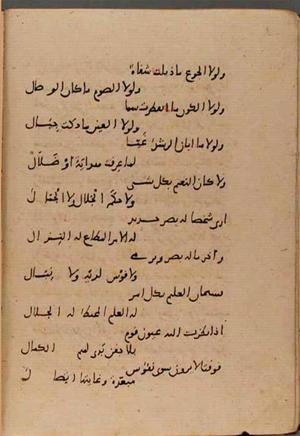 ولولا الجوع ماذبلت شفاه
ولولا الصوم ماكان الوصال
ولولا الكون ما انفطرت سما
ولولا العين مادكت جبال
ولولا ما ابان الرشد غيا
لما عرفت هداية او ضلال
ولا كان النعيم بكل شى
ولا حكم الجلال ولا الجمال
ارى شخصا له بصر حديد
له الامر المطاع له النزال
واخر ماله بصر ويرى
ولا قوس لديه ولا نبال
فسبحان العليم بكل امر
له العلم المحيط له الجلال
اذا نظرت اليه عيون قوم
بلا جفن بدى لهم الكمال
فوقتا لا يرون سوى نفوس
مبعدة وغايتها اتصال